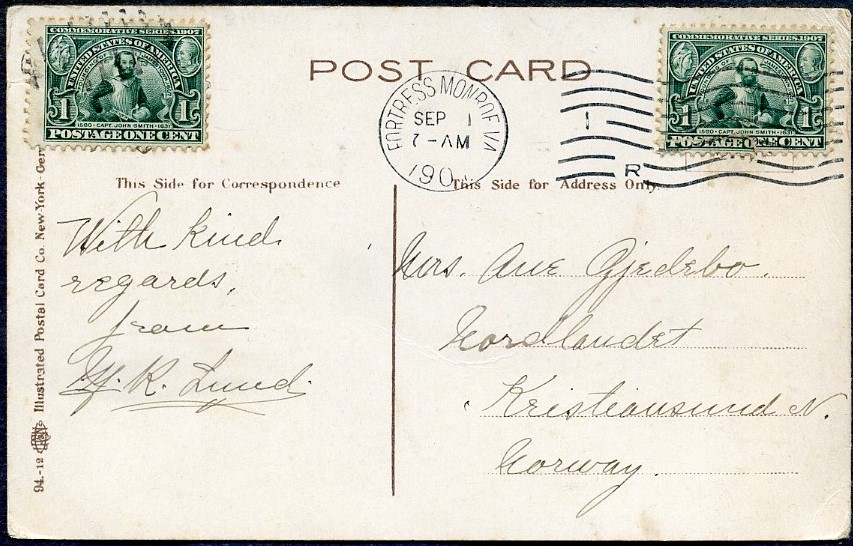 COMMEMORATIVE SERIES 1907
UNITED STATES OF AMERICA
1 1
1580 · CAPT. JOHN SMITH · 1631
POSTAGE ONE CENT
POST CARD
FORTRESS MONROE VA
SEP 1
7-AM
190
1
R
COMMEMORATIVE SERIES 1907
UNITED STATES OF AMERICA
1 1
1580 · CAPT. JOHN SMITH · 1631
POSTAGE ONE CENT
This Side for Correspondence
With kind
regards,
from
K. Lund.
This Side for Address Only.
Mrs. Ane Gjedebo.
Nordlandet
Kristiansund N.
Norway.
94.-12 Illustrated Postal Card Co. New-York - Ger